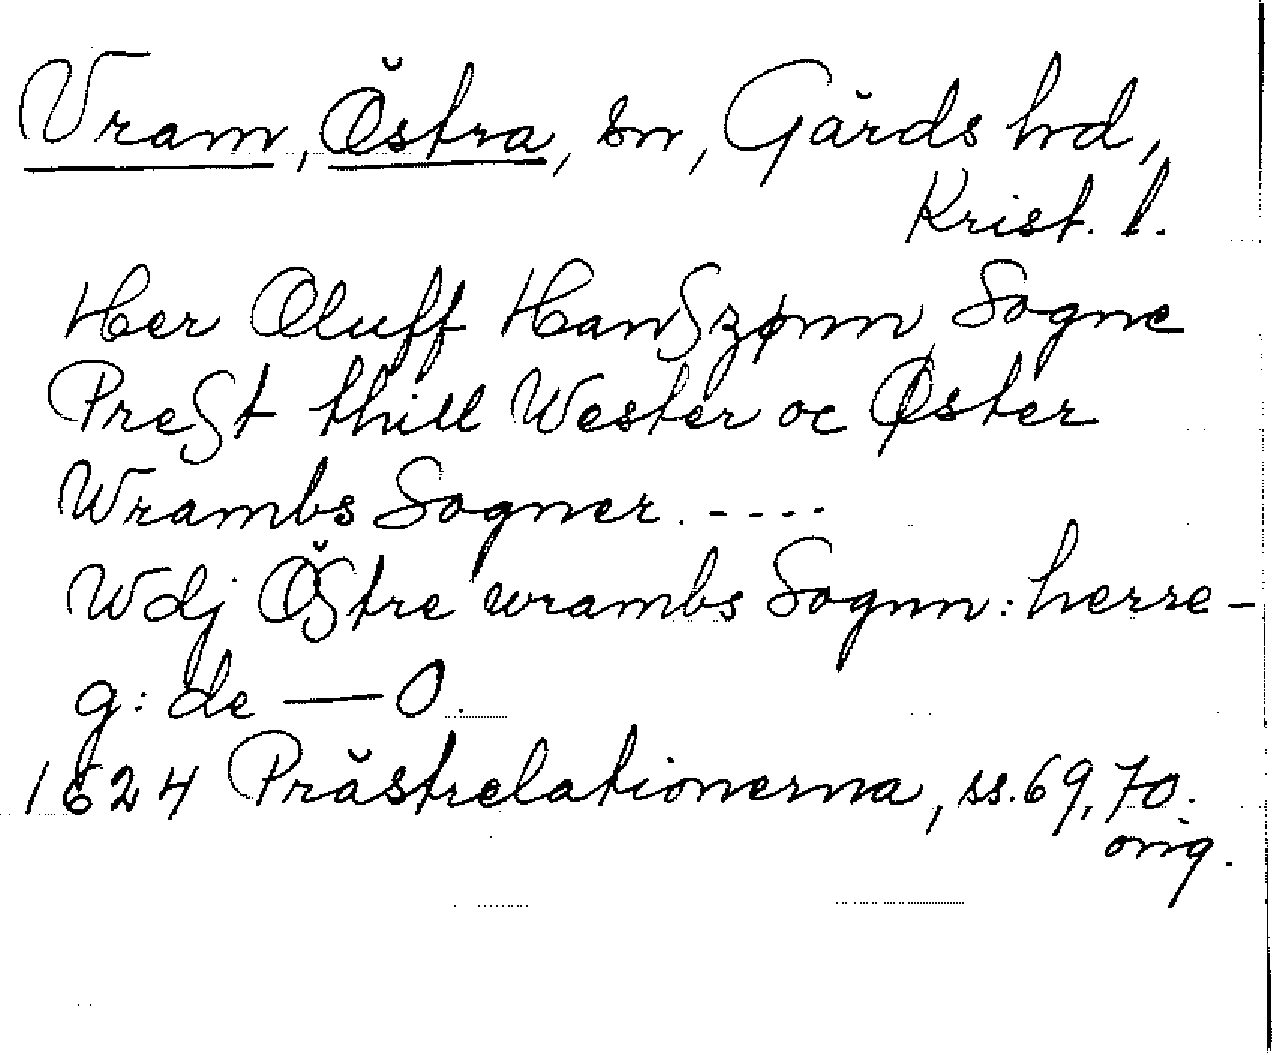 Vram, Östra, sn, Gärds hrd,
Krist. l.
Her Oluff Hanʃzønn Sogne
Preʃt thill Wester oc Øster
Wrambs Sogner. ----
Wdj Öʃtre wrambs Sognn: herre-
g: de — O.
1624 Prästrelationerna, ss. 69, 70.
orig.